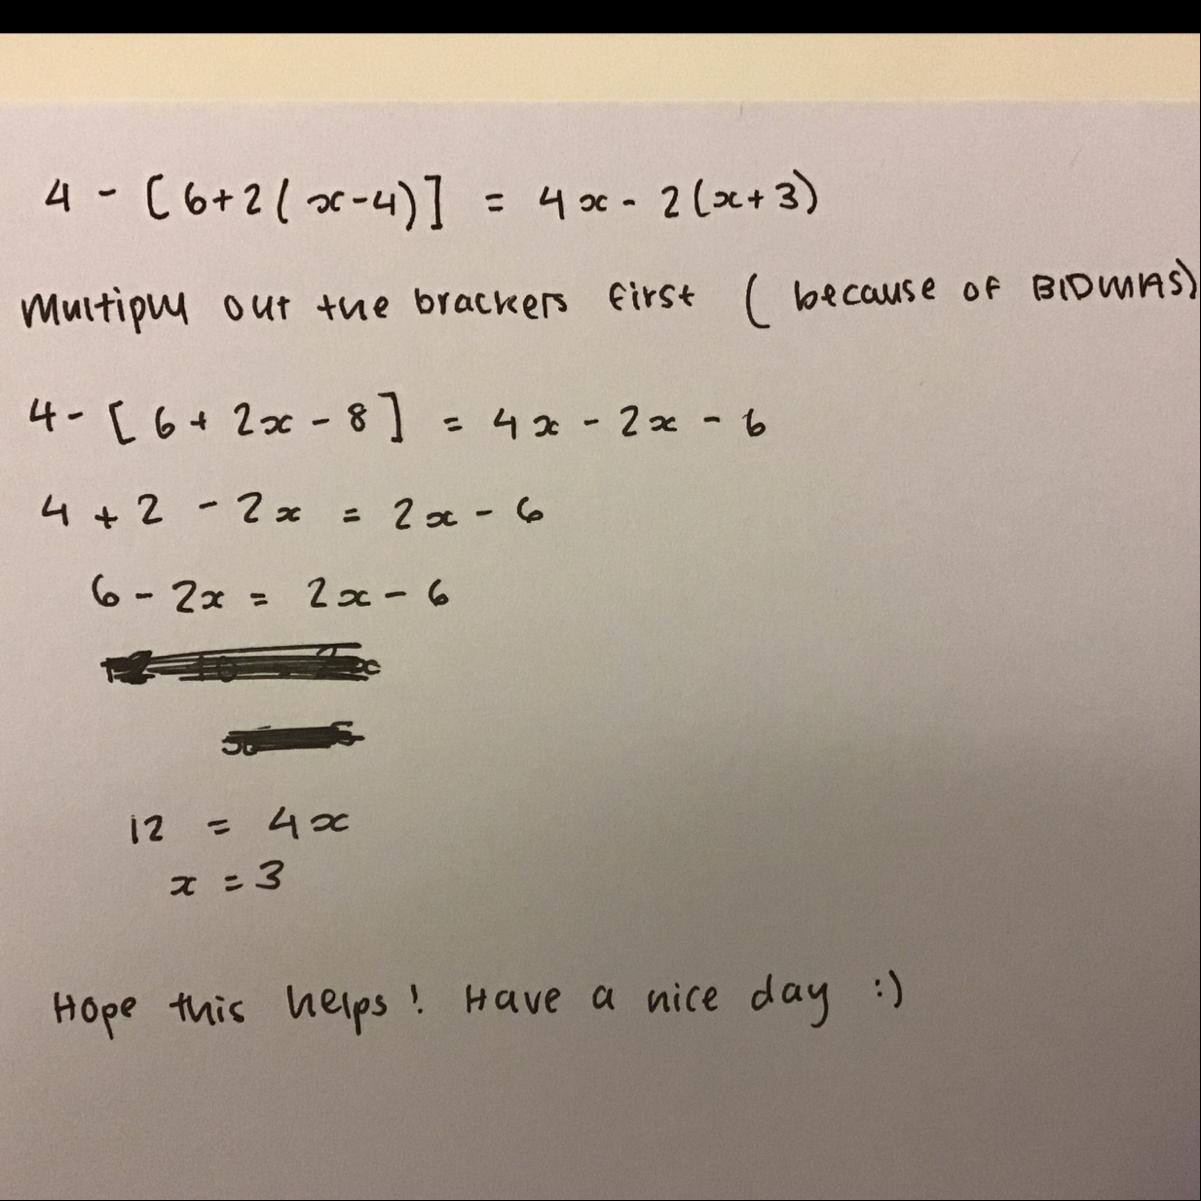 4 - [6+2(x-4)] = 4x - 2(x+3)
Multiply out the brackers first ( because of BIDMAS)
4 - [6 + 2x - 8] = 4x - 2x - 6
4 + 2 - 2x = 2x - 6
6 - 2x = 2x - 6
12 = 4x
x = 3
Hope this helps! Have a nice day :)